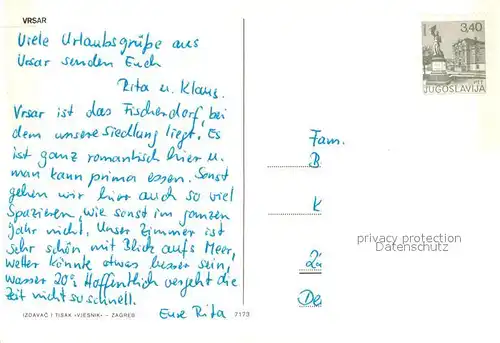 VRSAR
Viele Urlaubsgrüße aus
Vrsar senden Euch
Rita u. Klaus.
Vrsar ist das Fischerdorf, bei
dem unsere Siedlung liegt. Es
ist ganz romantisch hier u.
man kann prima essen. Sonst
gehen wir hier auch so viel
Spazieren, wie sonst im ganzen
Jahr nicht. Unser Zimmer ist
sehr schön mit Blick aufs Meer,
wetter könnte etwas besser sein,
wasser 20°. Hoffentlich vergeht die
Zeit nicht so schnell.
Eure Rita
IZDAVAČ I TISAK «VJESNIK» – ZAGREB 7173
3,40
JUGOSLAVIJA
Fam.
B
K
privacy protection
Datenschutz
De